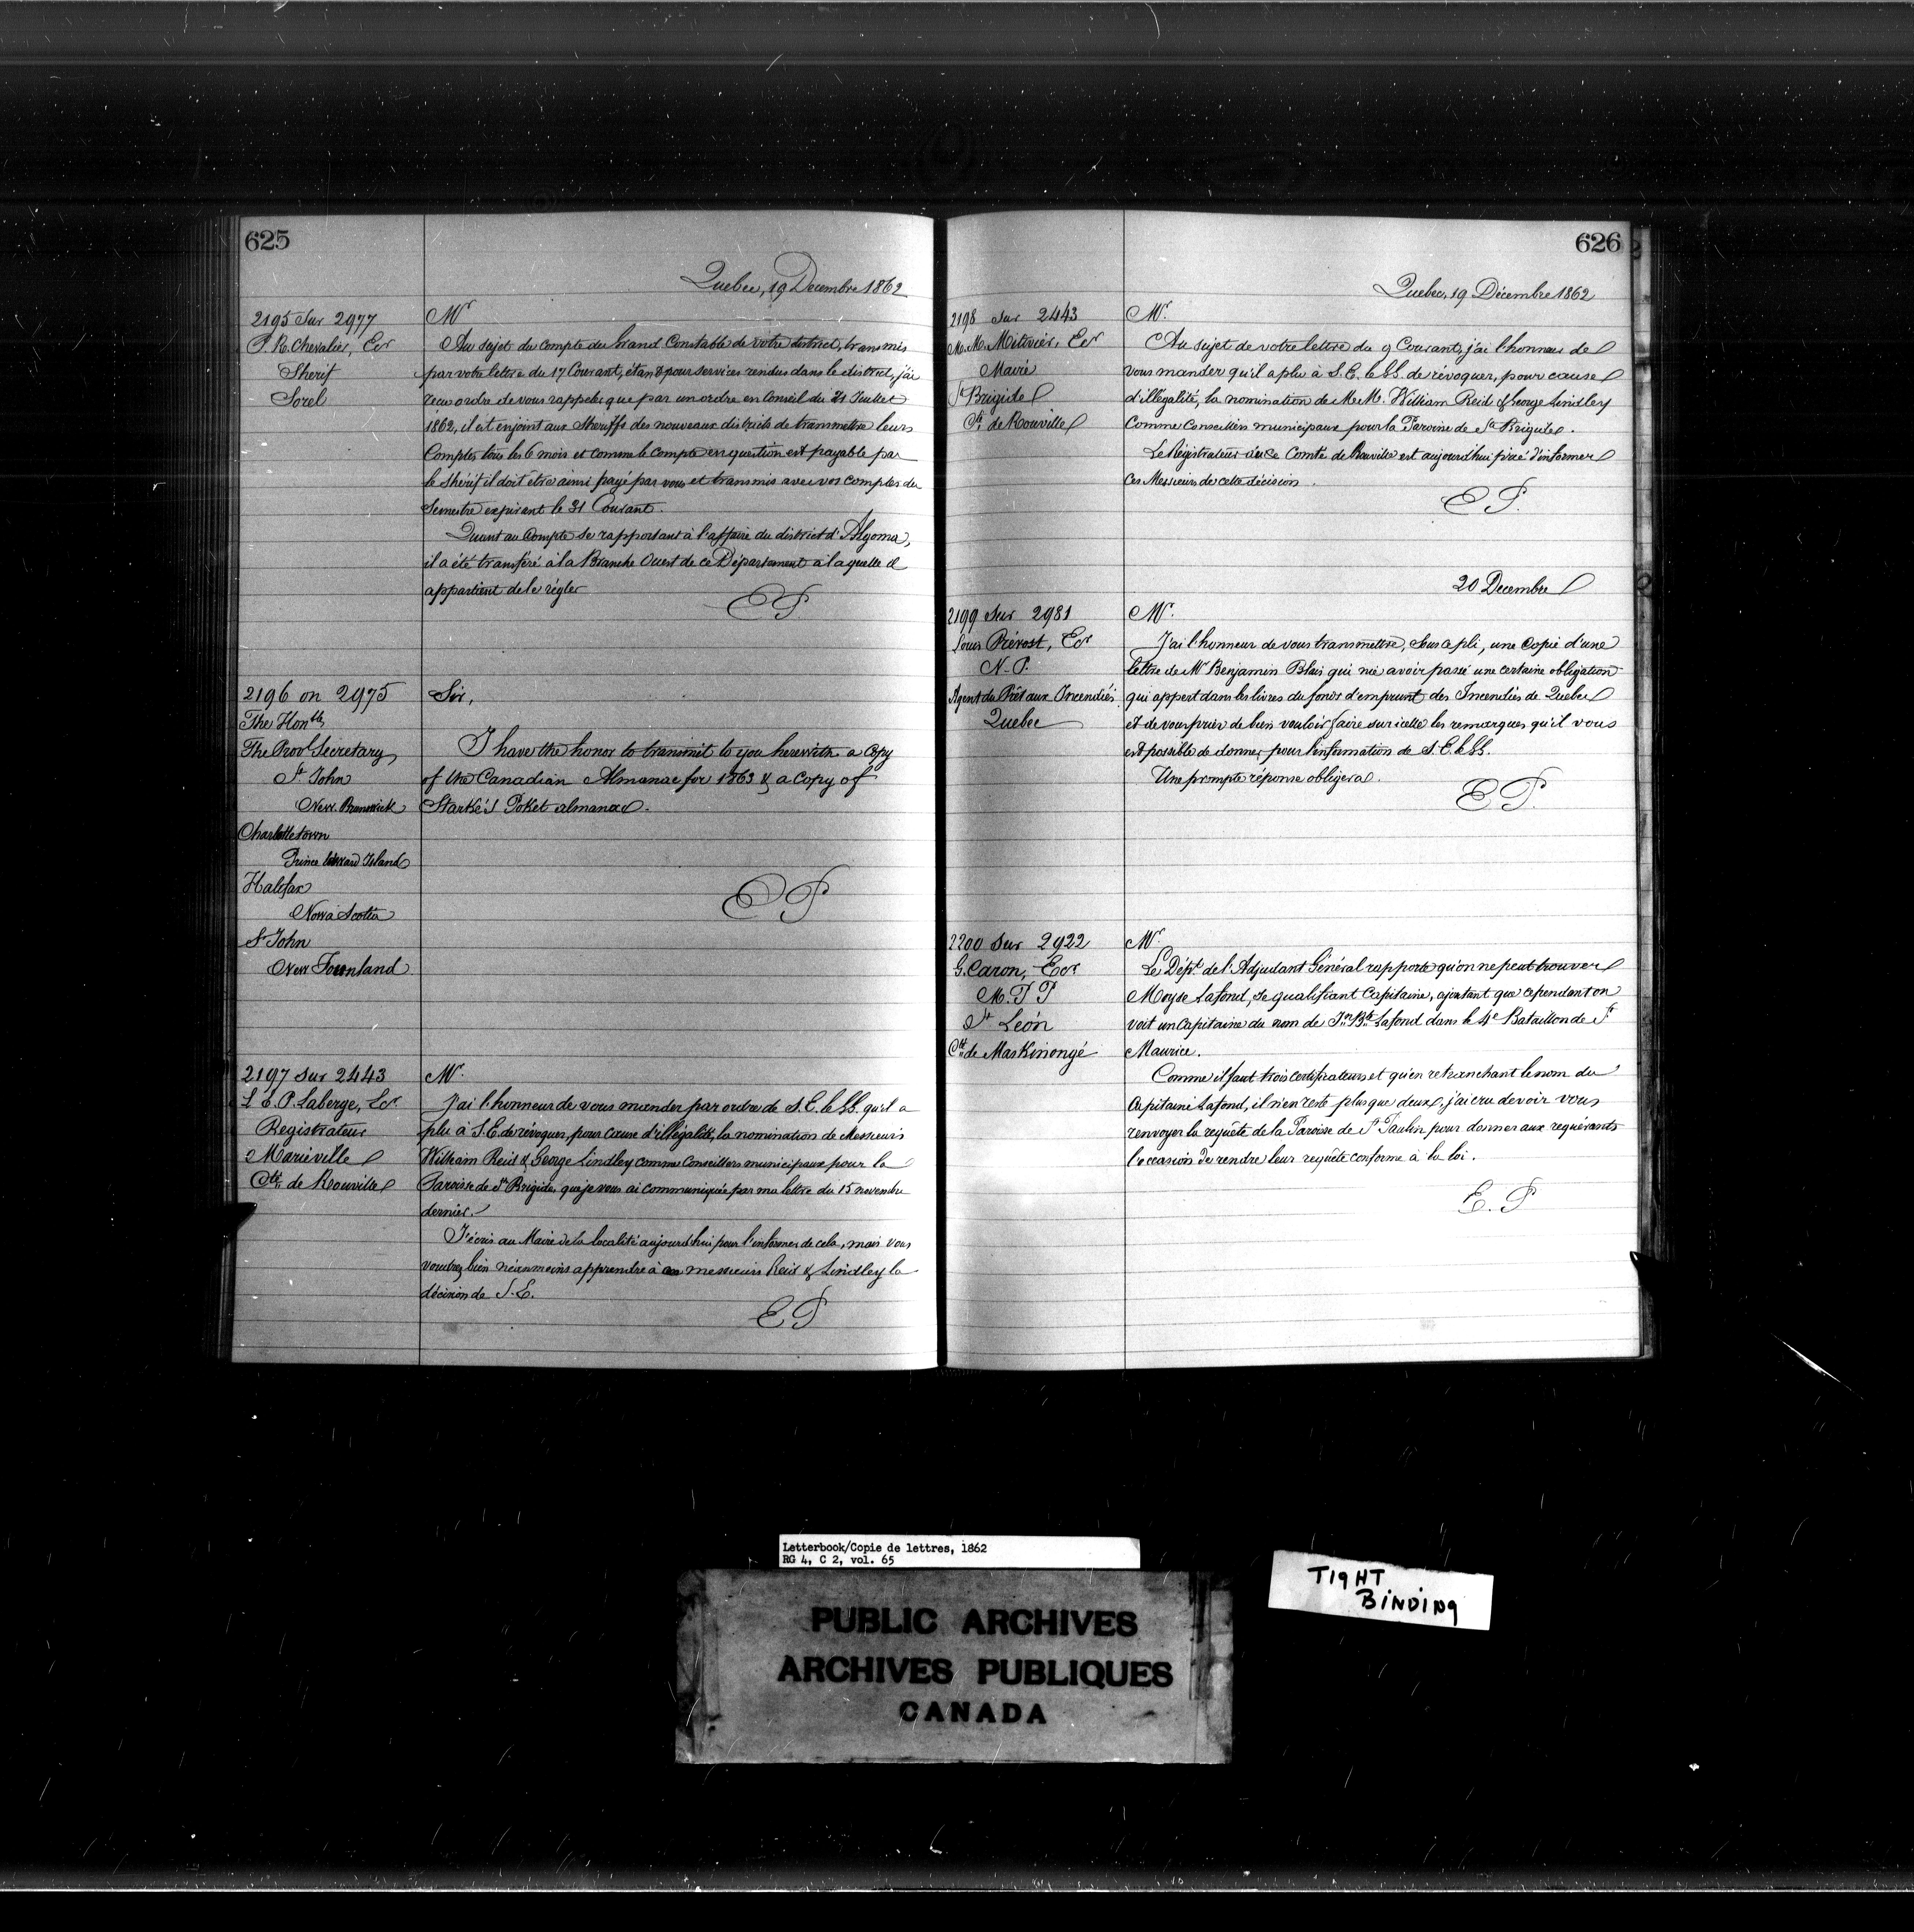 625
Quebec, 19 Decembre 1862
2195 Sur 2977
P. R. Chevalier, Ecr
Sherif
Sorel
Mr
Au sujet du compte du Grand Constable de votre district, transmis
par votre lettre du 17 Courant, étant pour services rendus dans le district, j'ai
recu ordre de vous rappeler que par un ordre en Conseil du 21 Juillet
1862, il est enjoint aux Sheriffs des nouveaux districts de transmettre leurs
Comptes tous les 6 mois et comme le compte en question est payable par
le Shérif il doit être ainsi payé par vous et transmis avec vos comptes du
Semestre expirant le 31 Courant.
Quant au Compte se rapportant à l'affaire du district d'Algoma,
il a été transféré à la Branche Ouest de ce Département à laquelle il
appartient de le régler
EP.
2196 on 2975
The Honble
The Provl Secretary
St John
New Brunswick
Charlottetown
Prince Edward Island
Halifax
Nova Scotia
St John
New Founland
Sir,
I have the honor to transmit to you herewith a Copy
of the Canadian Almanac for 1863 & a Copy of
Starké's Poket almanac.
EP
2197 sur 2443
L. E. P. Laberge, Ecr
Registrateur
Marieville
Cté de Rouville
Mr.
J'ai l'honneur de vous mander par ordre de S. E. le GG. qu'il a
plu à S. E. de révoquer, pour cause d'illégalité, la nomination de Messieurs
William Reid & George Lindley comme Conseillers municipaux pour la
Paroisse de Ste Brigide, que je vous ai communiquée par ma lettre du 15 novembre
dernier.
J'écris au Maire de la localité aujourd'hui pour l'informer de cela, mais vous
voudrez bien néanmoins apprendre à messieurs Reid & Lindley la
décision de S. E.
EP
626
Quebec, 19 Décembre 1862
2198 sur 2443
M. M. Mitivier, Ecr
Maire
St Brigide
Cté de Rouville
Mr.
Au sujet de votre lettre du 9 Courant, j'ai l'honneur de
vous mander qu'il a plu à S. E. le GG. de révoquer, pour cause
d'illégalité, la nomination de M.M. William Reid & George Lindley
comme Conseillers municipaux pour la Paroisse de Ste Brigide.
Le Régistrateur du Comté de Rouville est aujourd'hui prié d'informer
ces Messieurs de cette décision.
EP.
20 Decembre
2199 Sur 2981
Louis Prévost, Ecr
N. P.
Agent du Prêt aux Incendiés
Quebec
Mr.
J'ai l'honneur de vous transmettre, sous ce pli, une Copie d'une
lettre de Mr Benjamin Blais qui nie avoir passé une certaine obligation
qui appert dans les livres du fonds d'emprunt des Incendiés de Quebec
et de vous prier de bien vouloir faire sur icelle les remarques qu'il vous
est possible de donner pour l'information de S. E. le GG.
Une prompte réponse obligera.
EP.
2200 Sur 2922
G. Caron, Ecr
M. P P
St Léon
Cté de Maskinongé
Mr.
Le Dépt de l'Adjudant Général rapporte qu'on ne peut trouver
Moyse Lafond, se qualifiant Capitaine, ajoutant que cependant on
voit un Capitaine du nom de Jn Bte Lafond dans le 4e Bataillon de St
Maurice.
Comme il faut trois certificateurs et qu'en retranchant le nom du
Capitaine Lafond, il n'en reste plus que deux, j'ai cru devoir vous
renvoyer la requête de la Paroisse de St Paulin pour donner aux requérants
l'occasion de rendre leur requête conforme à la loi.
E. P
Letterbook/Copie de lettres, 1862
RG 4, C 2, vol. 65
PUBLIC ARCHIVES
ARCHIVES PUBLIQUES
CANADA
TIGHT
BINDING